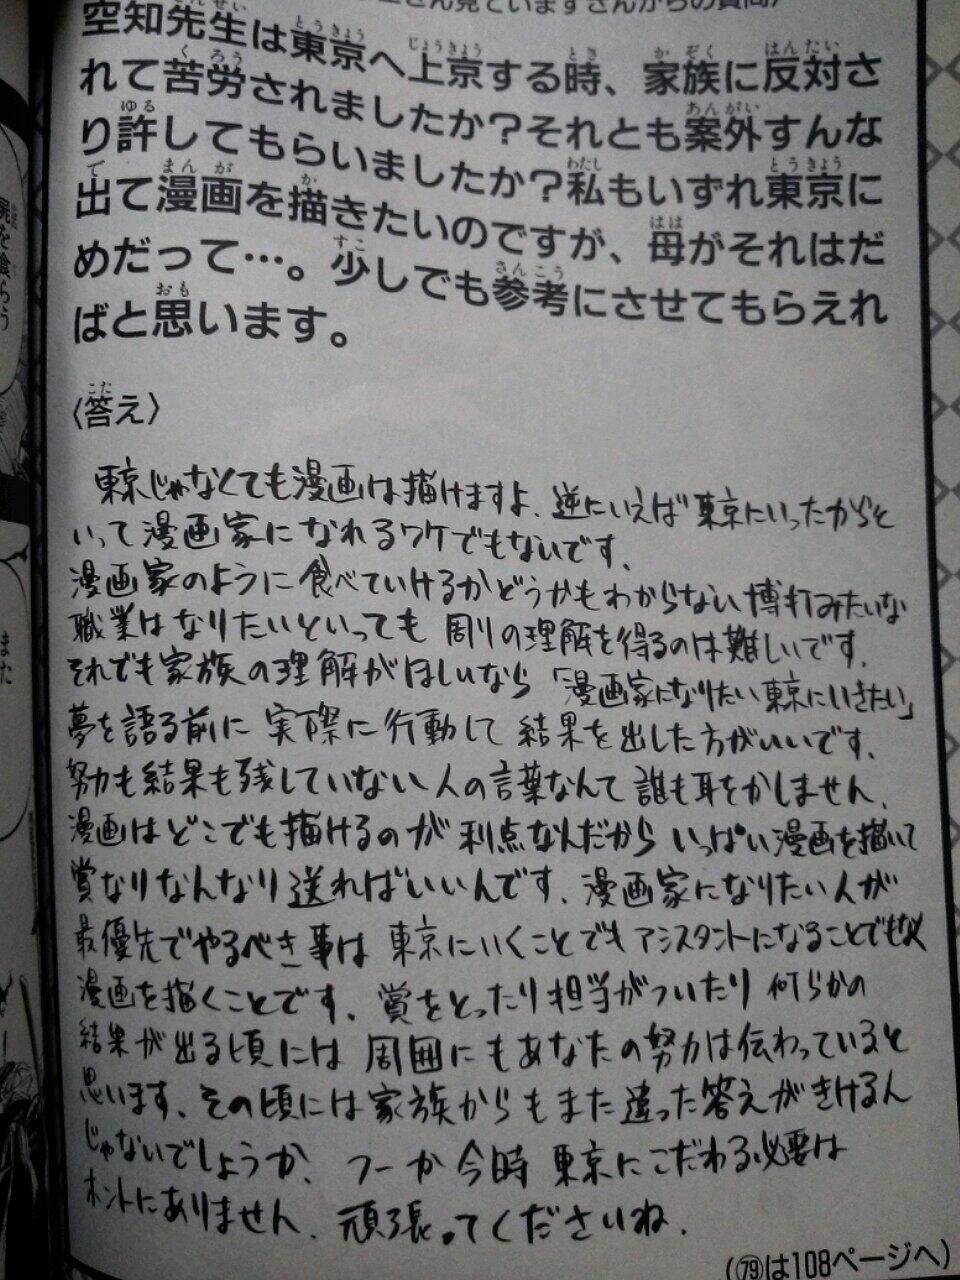 さん見ていますさんからの質問〉
空知先生は東京へ上京する時、家族に反対さ
れて苦労されましたか?それとも案外すんな
り許してもらいましたか?私もいずれ東京に
出て漫画を描きたいのですが、母がそれはだ
めだって…。少しでも参考にさせてもらえれ
ばと思います。
〈答え〉
東京じゃなくても漫画は描けますよ、逆にいえば東京にいったからと
いって漫画家になれるワケでもないです、
漫画家のように食べていけるかどうかもわからない博打みたいな
職業はなりたいといっても周りの理解を得るのは難しいです、
それでも家族の理解がほしいなら「漫画家になりたい東京にいきたい」
夢を語る前に実際に行動して結果を出した方がいいです、
努力も結果も残していない人の言葉なんて誰も耳をかしません、
漫画はどこでも描けるのが利点なんだからいっぱい漫画を描いて
賞なりなんなり送ればいいんです、漫画家になりたい人が
最優先でやるべき事は東京にいくことでもアシスタントになることでもなく
漫画を描くことです、賞をとったり担当がついたり何らかの
結果が出る頃には周囲にもあなたの努力は伝わっていると
思います、その頃には家族からもまた違った答えがきけるん
じゃないでしょうか、つーか今時東京にこだわる必要は
ホントにありません、頑張ってくださいね、
(79は108ページへ)
を喰らう
また